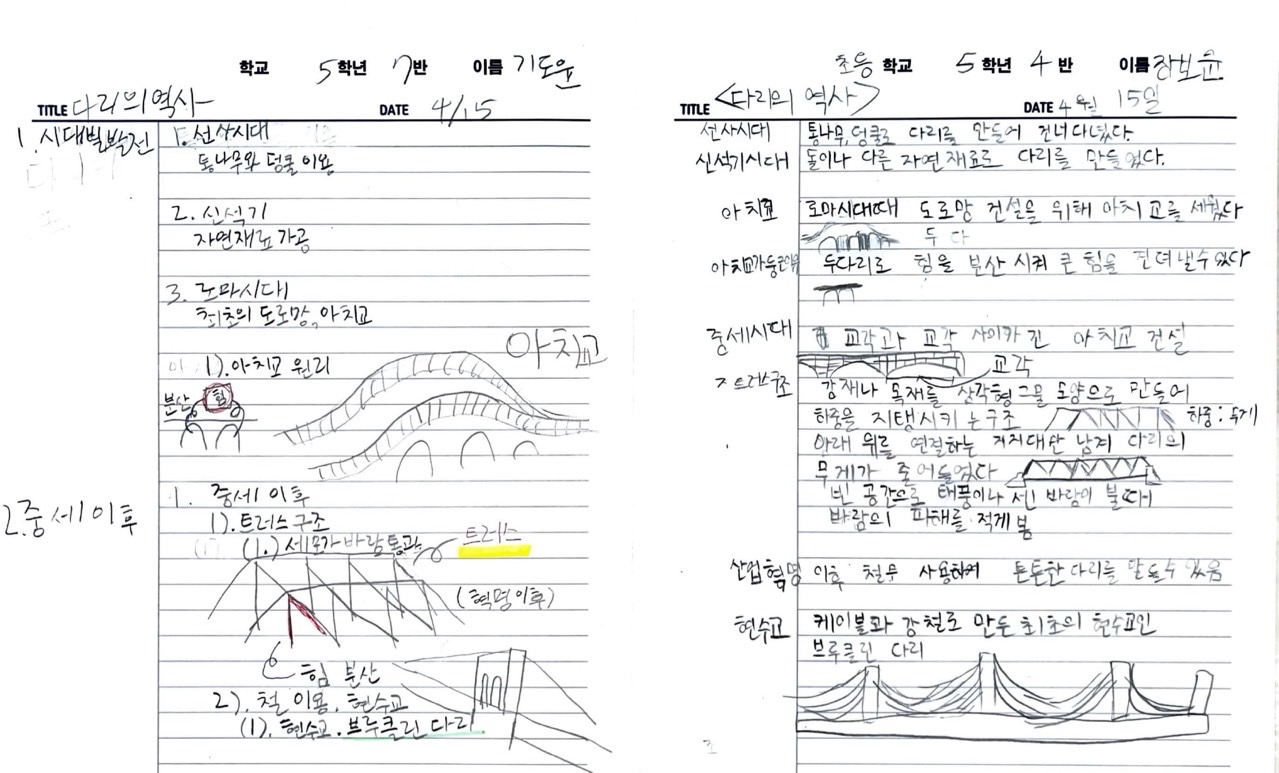 학교 5학년 7반 이름 기도윤
TITLE 다리의 역사 DATE 4/15
1. 시대별 발전
1. 선사시대
통나무와 덩쿨 이용
2. 신석기
자연재료 가공
3. 로마시대
최초의 도로망, 아치교
1). 아치교 원리
아치교
분산
힘
2. 중세 이후
1. 중세 이후
1). 트러스 구조
(1.) 바람 통과
트러스
(혁명이후)
힘 분산
2). 철 이용, 현수교
(1). 현수교. 브루클린 다리
초등 학교 5학년 4반 이름 장보윤
TITLE <다리의 역사> DATE 4월 15일
선사시대 통나무,덩쿨로 다리를 만들어 건너다녔다.
신석기시대 돌이나 다른 자연재료로 다리를 만들었다.
아치교 로마시대때 도로망 건설을 위해 아치교를 세웠다
두 다
아치교가 두다리로 힘을 분산 시켜 큰 힘을 견뎌낼수있다
중세시대 교각과 교각 사이가 긴 아치교 건설
교각
트러스구조 강재나 목재를 삼각형 그물 모양으로 만들어
하중을 지탱시키는구조
하중:무게
아래 위를 연결하는 지지대만 남겨 다리의
무게가 줄어들었다
빈 공간으로 태풍이나 센 바람이 불때
바람의 피해를 적게 봄
산업혁명 이후 철무 사용하여 튼튼한 다리를 만들수 있음
현수교 케이블과 강철로 만든 최초의 현수교인
브루클린 다리